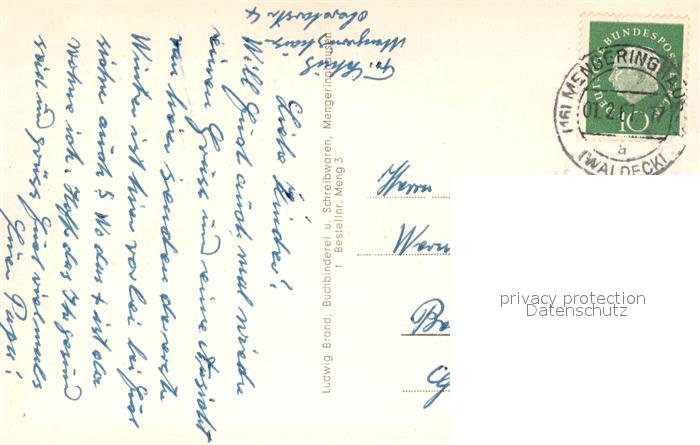 F. Schütz
Mengeringhausen
Liebe Kinder!
Will Euch auch mal wieder
einen Gruss und eine Ansicht
von hier senden der erste
Winter ist hier vorbei bei Euch
sicher auch? Wo das + ist da
wohne ich. Hoffe das Ihr gesund
seid und grüss Euch vielmals
Euer Papa!
Ludwig Brand, Buchbinderei u. Schreibwaren, Mengeringhausen
1 Bestellnr. Meng 3
DEUTSCHE BUNDESPOST
10
(16) MENGERINGHAUSEN
01.2.61
a
(WALDECK)
Herrn
Wern
privacy protection
Datenschutz